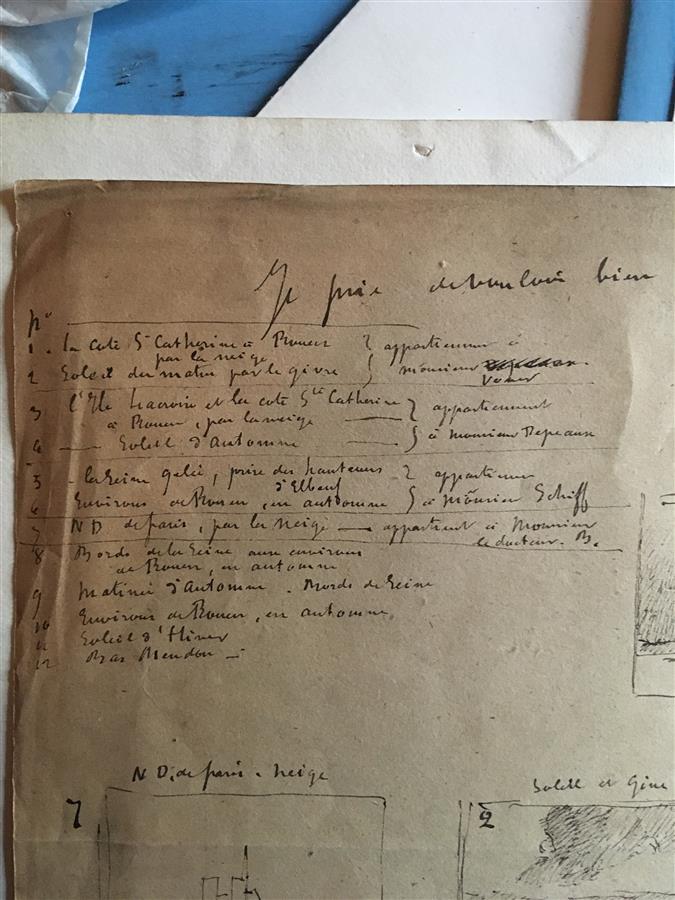 Je prie de vouloir bien
No
1. La cote Ste Catherine à Rouen
par la neige
appartiennent à
2 Soleil du matin par le givre
monsieur
3 L'Ile Lacroix et la cote Ste Catherine
à Rouen, par la neige
appartiennent
4 — Soleil d'Automne — à Monsieur Depeaux
5 - La Seine gelée, prise des hauteurs
d'Elbeuf
appartiennent
6 Environs de Rouen, en automne à Monsieur Schiff
7 N.D. de paris, par la neige — appartient à Monsieur
le docteur. B.
8 Bords de la Seine aux environs
de Rouen, en automne
9 Matinée d'Automne. Bords de Seine
10 Environs de Rouen, en automne
11 Soleil d'Hiver
12 Bas Meudon —
N D. de paris. neige
Soleil et Givre
7
2